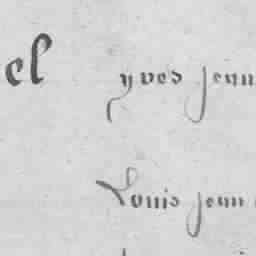 el yves jenn
Louis jenn